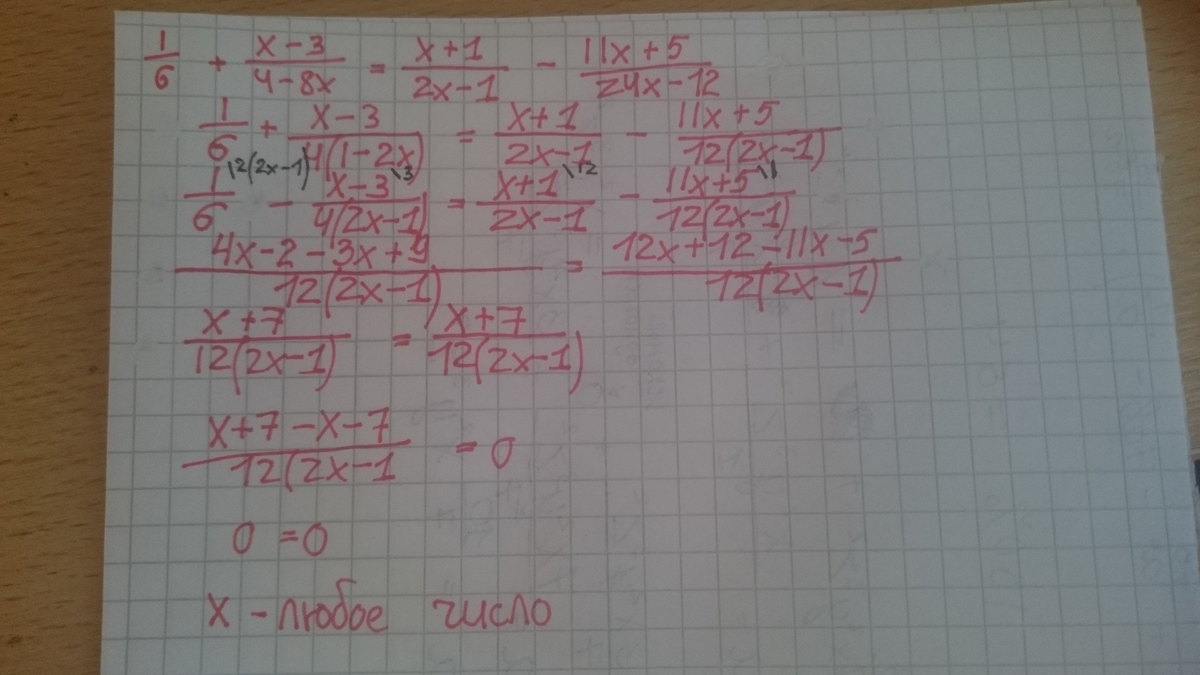 1/6 + (x-3)/(4-8x) = (x+1)/(2x-1) - (11x+5)/(24x-12)
1/6 + (x-3)/(4(1-2x)) = (x+1)/(2x-1) - (11x+5)/(12(2x-1))
1/6 \2(2x-1) - (x-3)/(4(2x-1)) \3 = (x+1)/(2x-1) \12 - (11x+5)/(12(2x-1)) \1
(4x-2-3x+9)/(12(2x-1)) = (12x+12-11x-5)/(12(2x-1))
(x+7)/(12(2x-1)) = (x+7)/(12(2x-1))
(x+7-x-7)/(12(2x-1) = 0
0 = 0
x - любое число